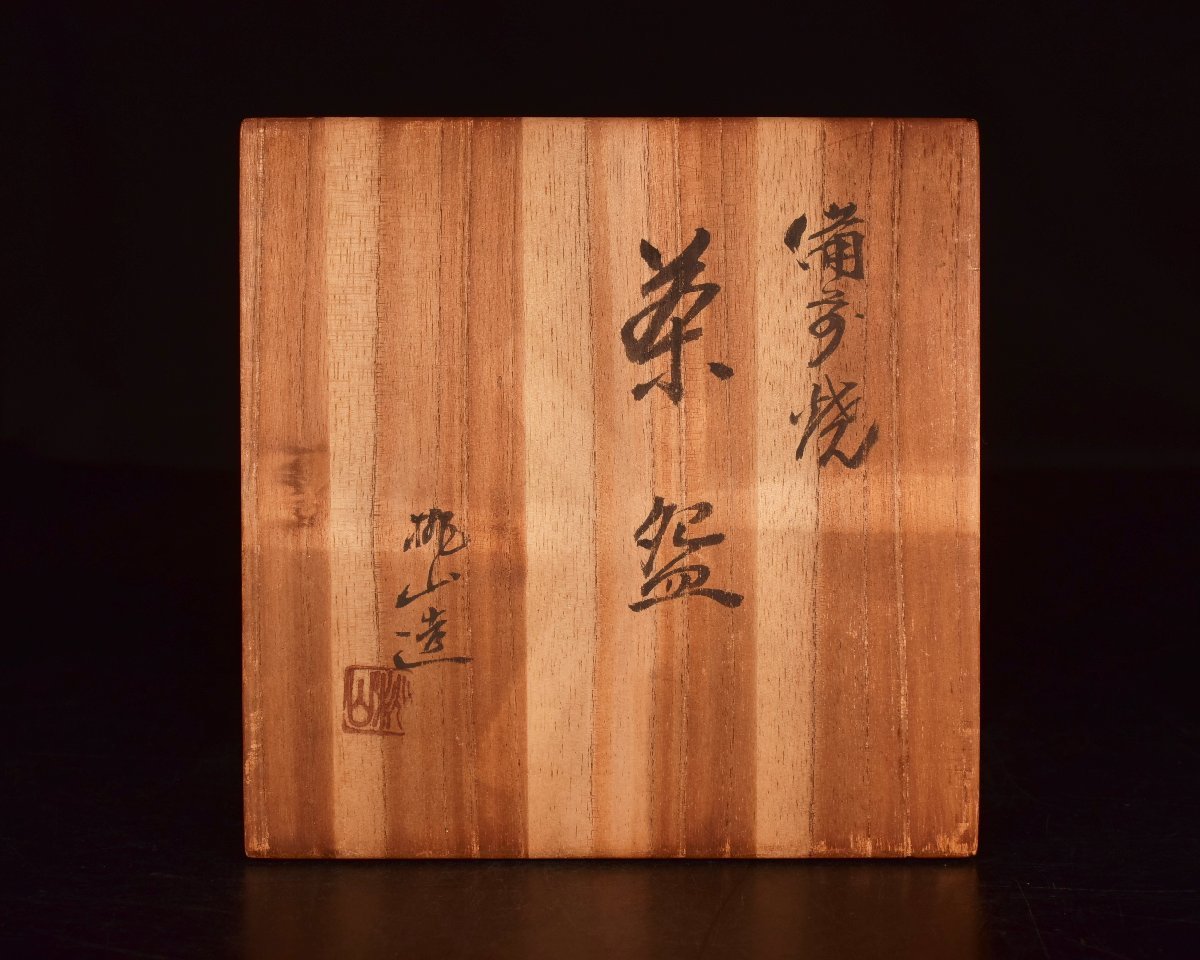 備前焼
茶盌
桃山造